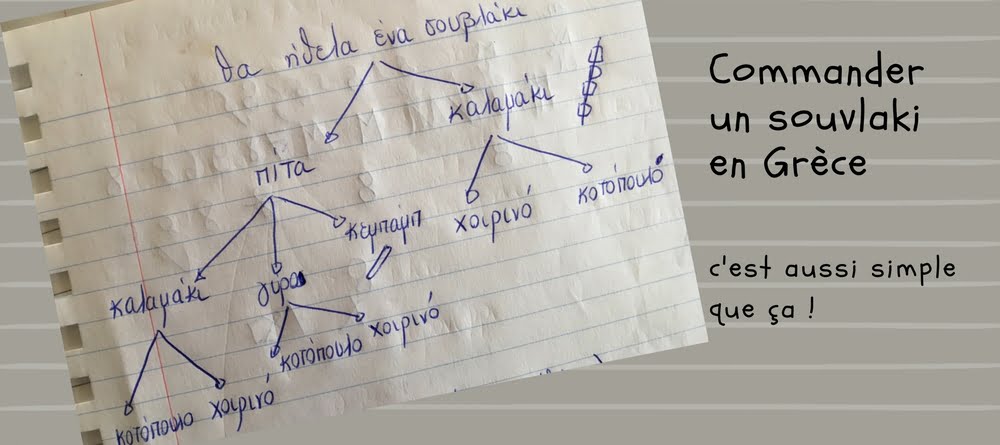 θα ήθελα ένα σουβλάκι
καλαμάκι
πίτα
χοιρινό
κοτόπουλο
κεμπάμπ
καλαμάκι
γύρο
κοτόπουλο
χοιρινό
κοτόπουλο
χοιρινό
Commander
un souvlaki
en Grèce
c'est aussi simple
que ça !